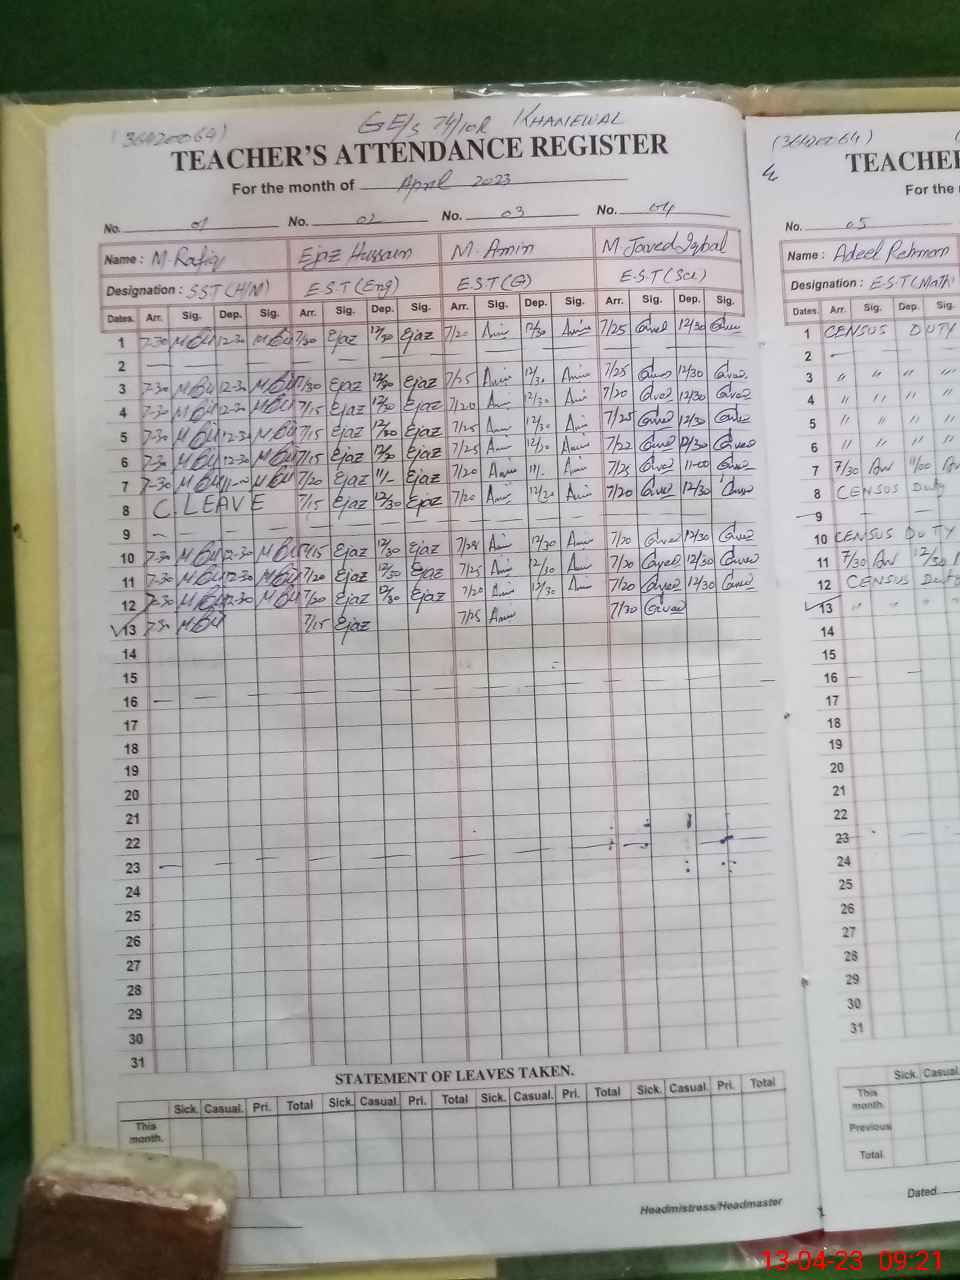 (36420064) GE/s 74/10R KHANEWAL
TEACHER'S ATTENDANCE REGISTER
For the month of April 2023
No. 01 No. 02 No. 03 No. 04
Name : M. Rafiq Ejaz Hussain M. Amin M. Javed Iqbal
Designation : SST (H/M) E.S.T (Eng) E.S.T (G) E.S.T (Sci.)
Dates. Arr. Sig. Dep. Sig. Arr. Sig. Dep. Sig. Arr. Sig. Dep. Sig. Arr. Sig. Dep. Sig.
1 7-30 12-30 7/30 Ejaz 12/30 Ejaz 7/20 Amin 12/30 Amin 7/25 12/30
2 — — — — — — — — — — — — — — —
3 7-30 12-30 7/30 Ejaz 12/30 Ejaz 7/25 Amin 12/30 Amin 7/25 12/30
4 7-30 12-30 7/15 Ejaz 12/30 Ejaz 7/20 Amin 12/30 Amin 7/20 12/30
5 7-30 12-30 7/15 Ejaz 12/30 Ejaz 7/25 Amin 12/30 Amin 7/25 12/30
6 7-30 12-30 7/15 Ejaz 12/30 Ejaz 7/25 Amin 12/30 Amin 7/22 12/30
7 7-30 11-00 7/20 Ejaz 11/- Ejaz 7/20 Amin 11/- Amin 7/25 11-00
8 C. LEAVE 7/15 Ejaz 12/30 Ejaz 7/20 Amin 12/30 Amin 7/20 12/30
9 — — — — — — — — — — — — — — —
10 7-30 12-30 7/15 Ejaz 12/30 Ejaz 7/25 Amin 12/30 Amin 7/20 12/30
11 7-30 12-30 7/20 Ejaz 12/30 Ejaz 7/25 Amin 12/10 Amin 7/20 12/30
12 7-30 12-30 7/20 Ejaz 12/30 Ejaz 7/20 Amin 12/30 Amin 7/20 12/30
13 7-30 7/15 Ejaz 7/25 Amin 7/30
14
15
16
17
18
19
20
21
22
23
24
25
26
27
28
29
30
31
STATEMENT OF LEAVES TAKEN.
Sick. Casual. Pri. Total Sick. Casual. Pri. Total Sick. Casual. Pri. Total Sick. Casual. Pri. Total
This month.
Headmistress/Headmaster
(36420064)
TEACHER
For the
No. 05
Name : Adeel Rehman
Designation : E.S.T (Math)
Dates. Arr. Sig. Dep. Sig.
1 CENSUS DUTY
2 —
3 〃 〃 〃 〃
4 〃 〃 〃 〃
5 〃 〃 〃 〃
6 〃 〃 〃 〃
7 7/30 11/00
8 CENSUS Duty
9 —
10 CENSUS DUTY
11 7/30 12/30
12 CENSUS Duty
13 〃 〃 〃 〃
14
15
16
17
18
19
20
21
22
23
24
25
26
27
28
29
30
31
Sick. Casual
This month.
Previous
Total.
Dated.
13-04-23 09:21